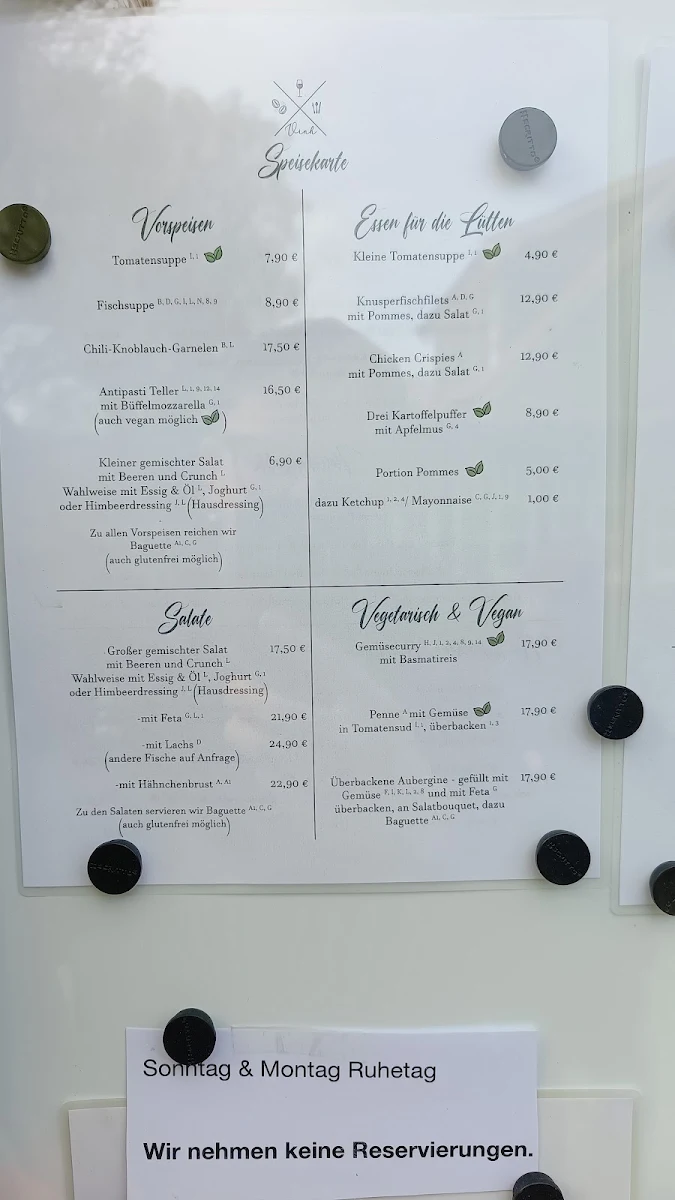 Speisekarte
Vorspeisen
Tomatensuppe I, 1 7,90 €
Fischsuppe B, D, G, I, L, N, 8, 9 8,90 €
Chili-Knoblauch-Garnelen B, L 17,50 €
Antipasti Teller L, 1, 9, 12, 14 16,50 €
mit Büffelmozzarella G, 1
(auch vegan möglich )
Kleiner gemischter Salat 6,90 €
mit Beeren und Crunch L
Wahlweise mit Essig & Öl L, Joghurt G, 1
oder Himbeerdressing J, L (Hausdressing)
Zu allen Vorspeisen reichen wir
Baguette A1, C, G
(auch glutenfrei möglich)
Essen für die Lütten
Kleine Tomatensuppe I, 1 4,90 €
Knusperfischfilets A, D, G 12,90 €
mit Pommes, dazu Salat G, 1
Chicken Crispies A 12,90 €
mit Pommes, dazu Salat G, 1
Drei Kartoffelpuffer 8,90 €
mit Apfelmus G, 4
Portion Pommes 5,00 €
dazu Ketchup 1, 2, 4/ Mayonnaise C, G, J, 1, 9 1,00 €
Salate
Großer gemischter Salat 17,50 €
mit Beeren und Crunch L
Wahlweise mit Essig & Öl L, Joghurt G, 1
oder Himbeerdressing J, L (Hausdressing)
-mit Feta G, L, 1 21,90 €
-mit Lachs D 24,90 €
(andere Fische auf Anfrage)
-mit Hähnchenbrust A, A1 22,90 €
Zu den Salaten servieren wir Baguette A1, C, G
(auch glutenfrei möglich)
Vegetarisch & Vegan
Gemüsecurry H, J, 1, 2, 4, 8, 9, 14 17,90 €
mit Basmatireis
Penne A mit Gemüse 17,90 €
in Tomatensud I, 1, überbacken 1, 3
Überbackene Aubergine - gefüllt mit 17,90 €
Gemüse F, I, K, L, 2, 8 und mit Feta G
überbacken, an Salatbouquet, dazu
Baguette A1, C, G
Sonntag & Montag Ruhetag
Wir nehmen keine Reservierungen.